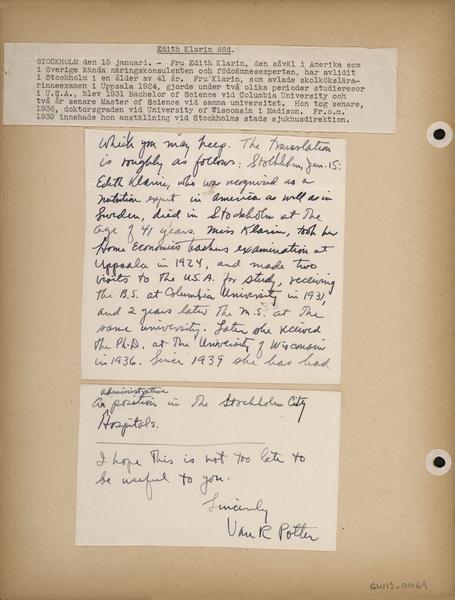 Edith Klarin död.
STOCKHOLM den 15 januari. - Fru Edith Klarin, den såväl i Amerika som
i Sverige kända näringskonsulenten och födoämnesexperten, har avlidit
i Stockholm i en ålder av 41 år. Fru Klarin, som avlade skolkökslära-
rinneexamen i Uppsala 1924, gjorde under två olika perioder studieresor
i U.S.A., blev 1931 Bachelor of Science vid Columbia University och
två år senare Master of Science vid samma universitet. Hon tog senare,
1936, doktorsgraden vid University of Wisconsin i Madison. Fr.o.m.
1939 innehade hon anställning vid Stockholms stads sjukhusdirektion.
which you may keep. The translation
is roughly as follows: Stockholm, Jan. 15:
Edith Klarin, who was recognized as a
nutrition expert in america as well as in
Sweden, died in Stockholm at the
age of 41 years. Miss Klarin, took her
Home Economics teachers examination at
Uppsala in 1924, and made two
visits to the U.S.A. for study, receiving
the B.S. at Columbia University in 1931,
and 2 years later the M.S. at the
same university. Later she received
the Ph.D. at the University of Wisconsin
in 1936. Since 1939 she has had
administrative
an position in the Stockholm City
Hospitals.
I hope this is not too late to
be useful to you.
Sincerely
Van R Potter
GWIS_0069